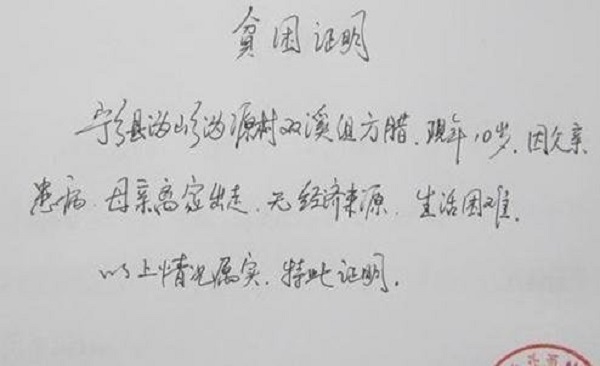 贫困证明
宁乡县沩山乡沩源村双溪组方腊，现年10岁，因父亲
患病，母亲离家出走，无经济来源，生活困难。
以上情况属实，特此证明。